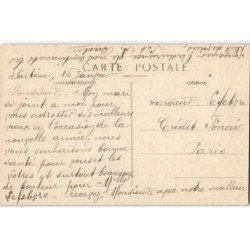 CARTE POSTALE
CORRESPONDANCE
ADRESSE
Sartène, 15 janvier
Monsieur, Mon mari
se joint à moi pour
vous adresser nos meilleurs
vœux à l'occasion de la
nouvelle année. nous
vous souhaitons bonne
santé pour vous et les
vôtres et surtout beaucoup
de bonheur pour Mlle
Lefebvre. recevez Monsieur, avec notre meilleur
Monsieur Lefebvre
Crédit Foncier
Paris